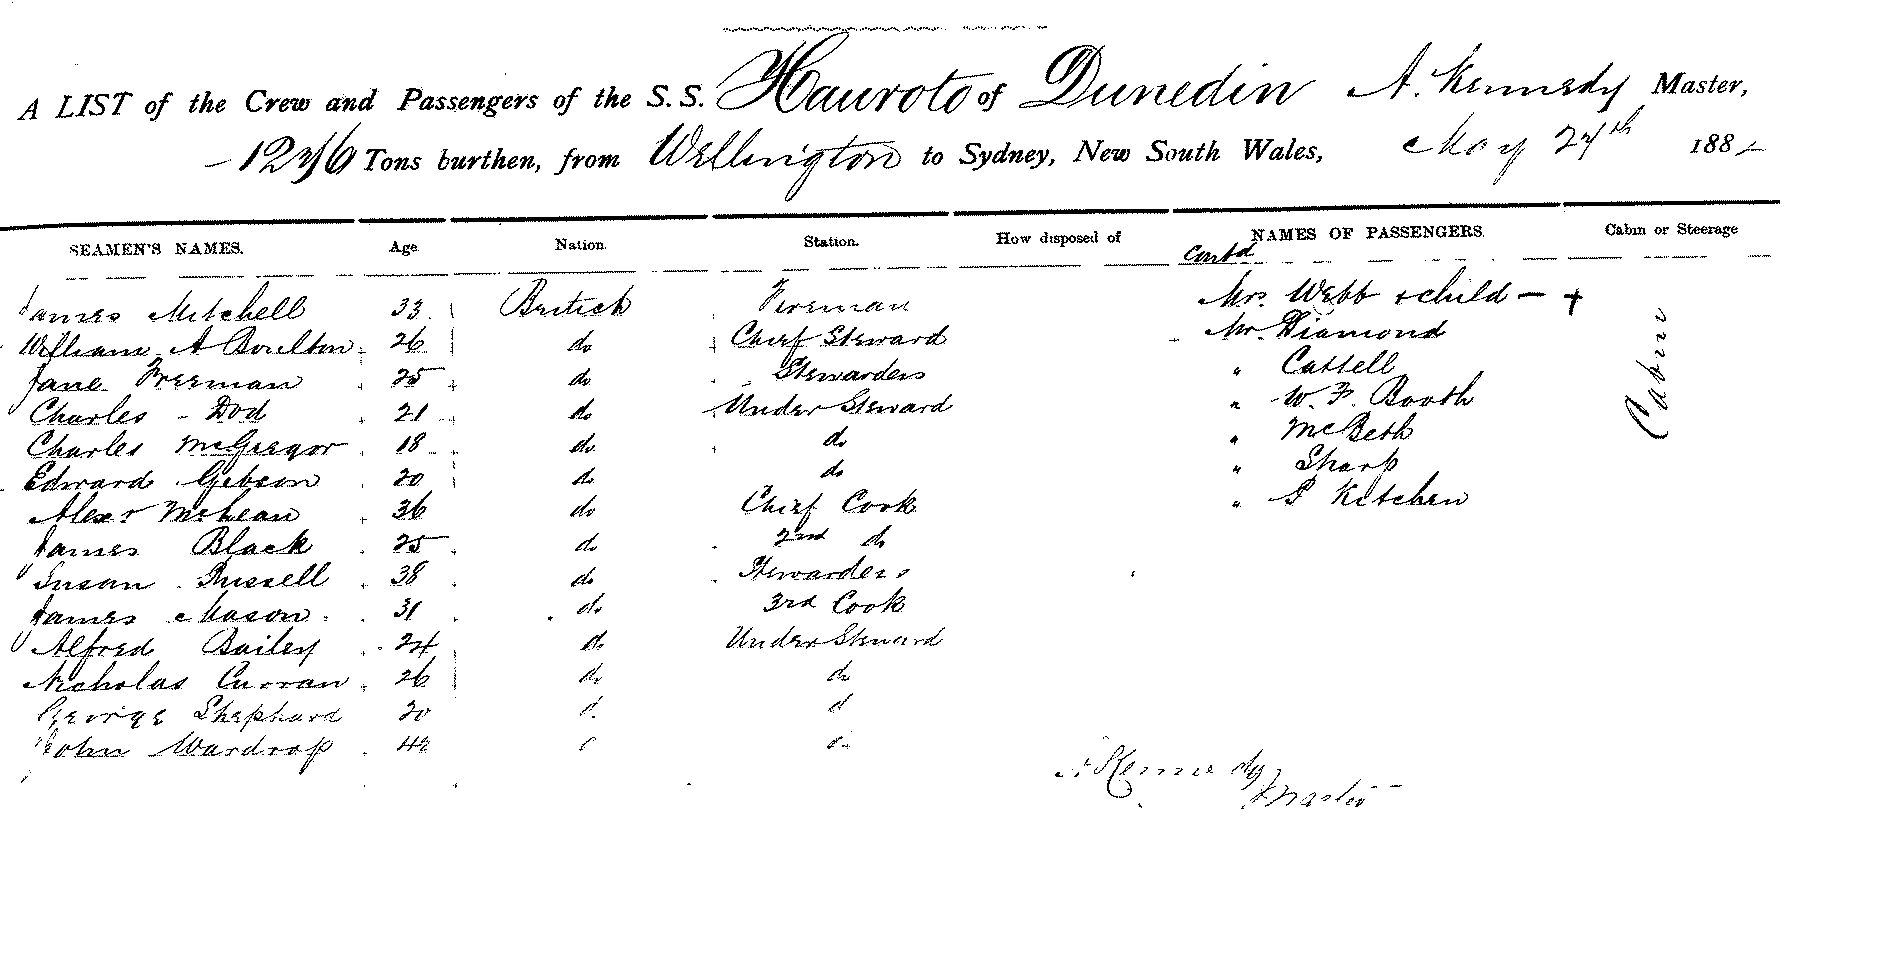 A LIST of the Crew and Passengers of the S.S. Hauroto of Dunedin A. Kennedy Master,
Tons burthen, from Wellington to Sydney, New South Wales, May 24th 188
SEAMEN'S NAMES. Age Nation. Station. How disposed of NAMES OF PASSENGERS. Cabin or Steerage
Contd
James Mitchell 33 British Fireman Mrs. Webb & child — +
William A Boulton 26 do Chief Steward Mr. Diamond
Jane Freeman 25 do Stewardess " Cattell
Charles Dod 21 do Under Steward " W. F. Booth
Charles McGregor 18 do do " McBeth
Edward Gibson 20 do do " Sharp
Alexr McLean 36 do Chief Cook " P Kitchen
James Black 25 do 2nd do
Susan Russell 38 do Stewardess
James Mason 31 do 3rd Cook
Alfred Bailey 24 do Under Steward
Nicholas Curran 26 do do
George Shephard 20 d d
John Wardrop 42
Cabin
A Kennedy
Master